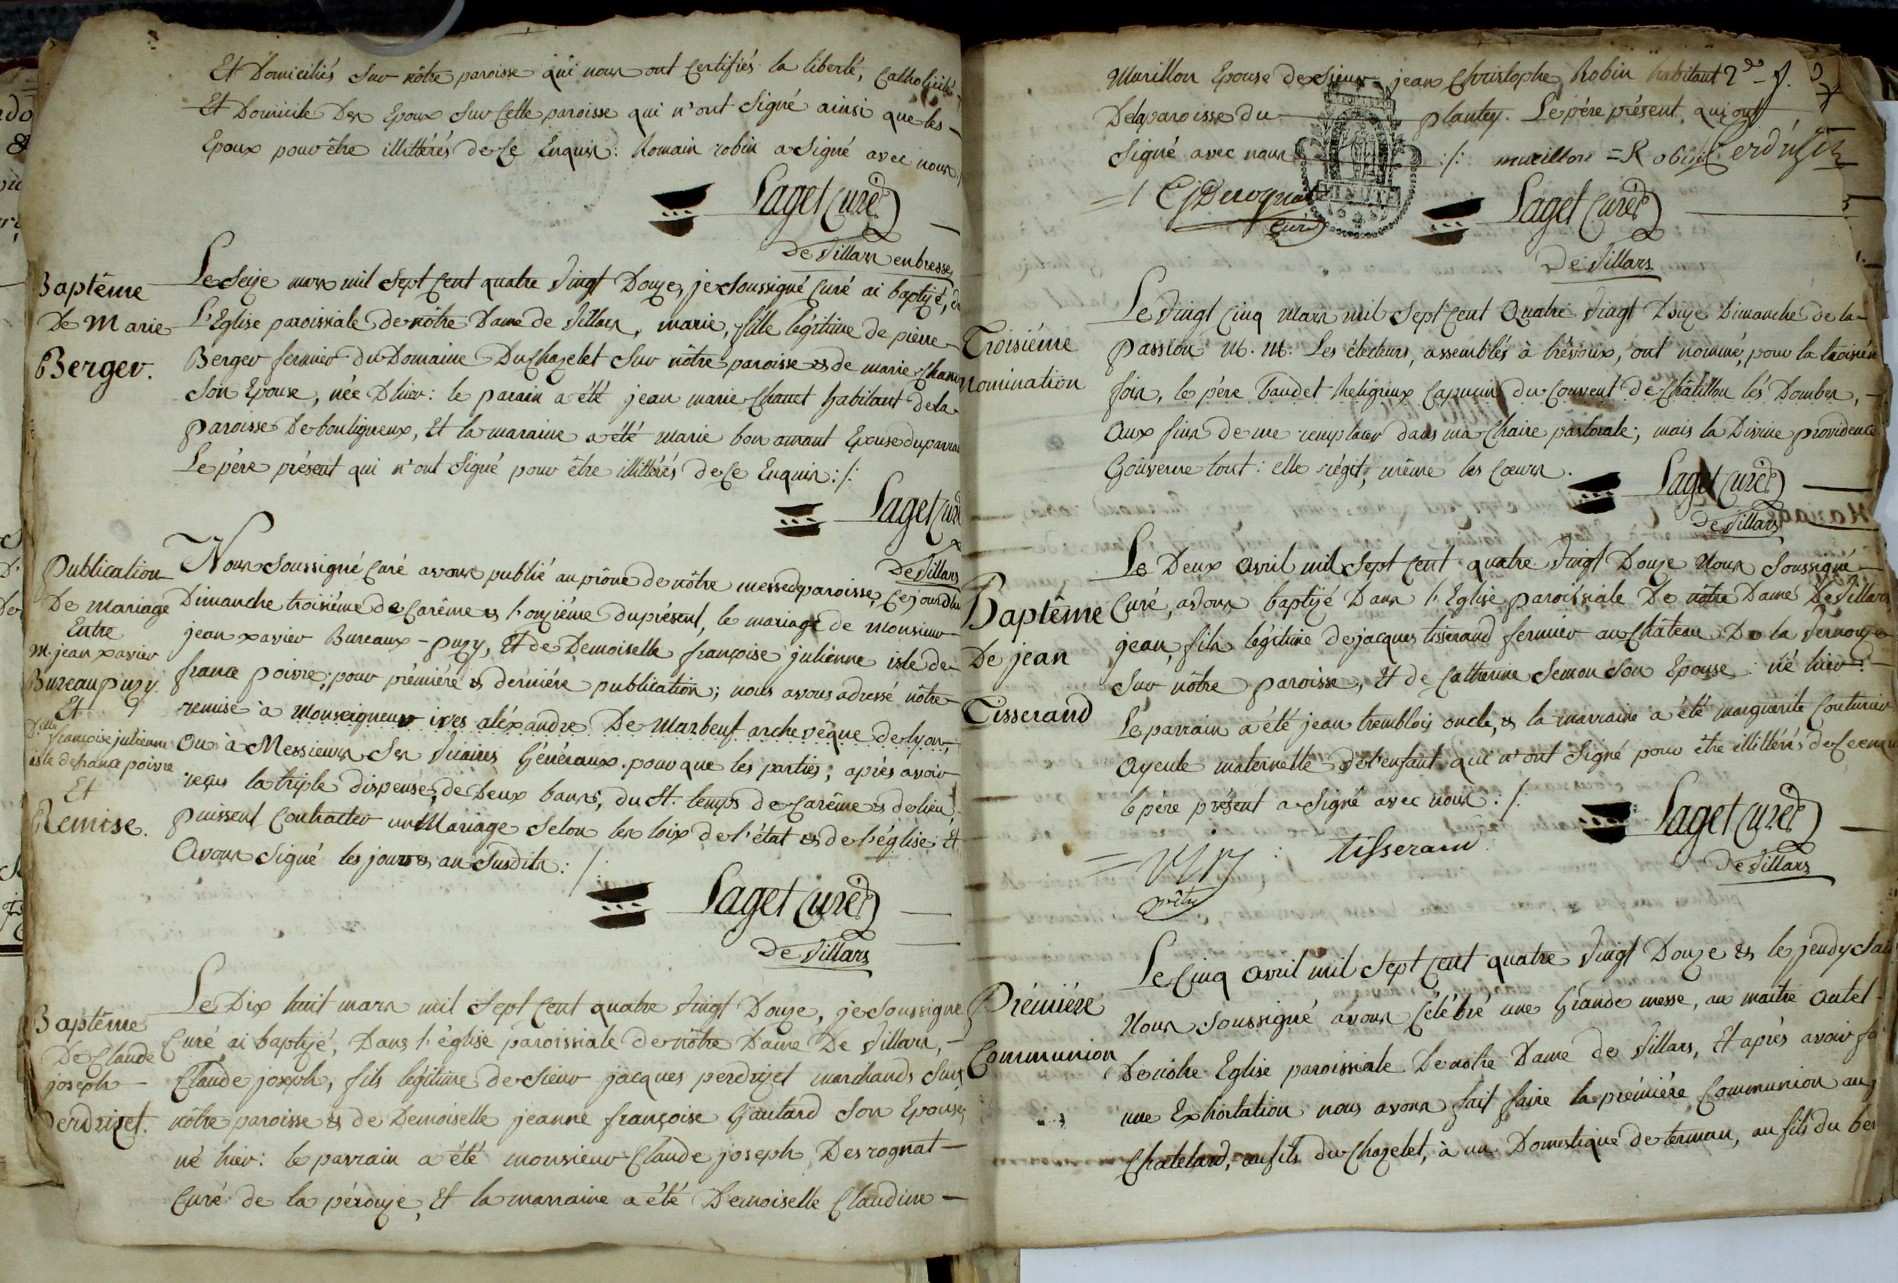 Et Domiciliés Sur nôtre paroisse qui nous ont Certifiés la liberté, Catholicité
Et Domicile Des Epoux Sur Cette paroisse qui n'ont Signé ainsi que les
Epoux pour être illittérés de Ce Enquis : Romain robin a Signé avec nous
Laget Curé
De Villars en bresse
Baptême
De Marie
Berger.
Le Seize mars mil Sept Cent quatre Vingt Douze, je Soussigné Curé ai baptizé, d
L'Eglise paroissiale de nôtre Dame de Villars, marie, fille légitime de pierre
Berger fermier du Domaine Du Chazelet Sur nôtre paroisse & de marie
Son Epouse, née D'hier : le parain a été jean marie Chanet habitant de la
paroisse De bouligneux, Et la maraine a été marie bon amant Epouse du parrain
Le père présent qui n'ont Signé pour être illittérés de Ce Enquis :/:
Laget Curé
De Villars
Publication
De Mariage
Entre
M. jean xavier
Bureau Puzy
Et
Dlle françoise julienne
isle de france poivre
Et
Remise.
Nous Soussigné Curé avons publié au prône de nôtre messe de paroisse, Cejourd'hui
Dimanche troisième de Carême & l'onzième du présent, le mariage de Monsieur
jean xavier Bureaux-puzy, Et de Demoiselle françoise julienne isle de
france poivre; pour première & dernière publication; nous avons adressé nôtre
remise à Monseigneur ives aléxandre De Marbeuf archevêque de lyon,
Ou à Messieurs Ses Vicaires Généraux. pour que les parties; après avoir
reçus la triple dispense, de Deux bans, du St. temps de Carême & de lieu,
puissent Contracter un Mariage Selon les loix de l'état & de l'église; Et
Avons Signé les jour & an Susdits : /:
Laget Curé
De Villars
Baptême
De Claude
joseph
Perdrizet.
Le Dix huit mars mil Sept Cent quatre Vingt Douze, je Soussigné
Curé ai baptizé, Dans l'église paroissiale de nôtre Dame De Villars,
Claude joseph, fils légitime de Sieur jacques perdrizet marchands Sur
nôtre paroisse & de Demoiselle jeanne françoise Gautard Son Epouse,
né hier : le parrain a été monsieur Claude joseph Desrognat
Curé de la pérouze, Et la marraine a été Demoiselle Claudine
Murillon Epouse de Sieur jean Christophe Robin habitant
De la paroisse du plantey. Le père présent, qui ont
Signé avec nous :/: murillon = Robin Perdrizet
CJ Desrognat
Curé
Laget Curé
De Villars
Troisième
nomination
Le Vingt Cinq Mars mil Sept Cent Quatre Vingt Douze Dimanche de la
Passion M. M. Les électeurs, assemblés à trévoux, ont nommé, pour la troisième
fois, le père Baudet Religieux Capucin du Couvent de Châtillon lès Dombes,
aux fins de me remplacer dans ma Chaire pastorale; mais la Divine providence
Gouverne tout : elle régit, même les Cœurs.
Laget Curé
De Villars
Baptême
De jean
Tisserand
Le Deux Avril mil Sept Cent quatre Vingt Douze Nous Soussigné
Curé, avons baptizé Dans l'Eglise paroissiale De nôtre Dame De Villars
jean, fils légitime de jacques tisserand fermier au Château De la Vernouze
Sur nôtre paroisse, Et de Catherine Semon Son Epouse : né hier :
Le parrain a été jean tremblois oncle, & la marraine a été marguerite Couturier
Ayeule maternelle de l'enfant qui n'ont Signé pour être illittérés de Ce enquis
le père présent a Signé avec nous : /:
tisserand
prêtre
Laget Curé
De Villars
Première
Communion
Le Cinq Avril mil Sept Cent quatre Vingt Douze & le jeudy Saint
Nous Soussigné avons Célébré une Grande messe, au maître Autel
De nôtre Eglise paroissiale De nôtre Dame de Villars, Et après avoir fait
une Exhortation nous avons fait faire la première Communion au
Chatelard, au fils du Chazelet, à un Domestique de terman, au fils du